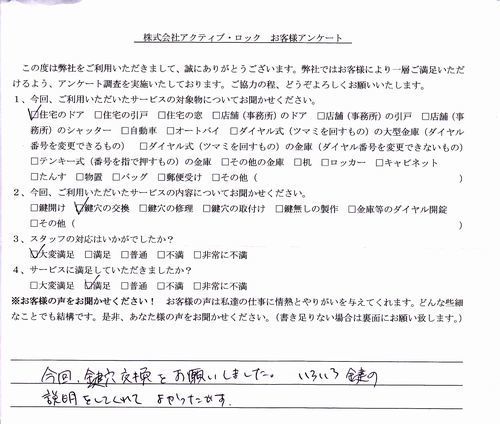 株式会社アクティブ・ロック　お客様アンケート
この度は弊社をご利用いただきまして、誠にありがとうございます。弊社ではお客様により一層ご満足いただ
けるよう、アンケート調査を実施いたしております。ご協力の程、どうぞよろしくお願いいたします。
1、今回、ご利用いただいたサービスの対象物についてお聞かせください。
☑住宅のドア　□住宅の引戸　□住宅の窓　□店舗（事務所）のドア　□店舗（事務所）の引戸　□店舗（事
務所）のシャッター　□自動車　□オートバイ　□ダイヤル式（ツマミを回すもの）の大型金庫（ダイヤル
番号を変更できるもの）　□ダイヤル式（ツマミを回すもの）の金庫（ダイヤル番号を変更できないもの）
□テンキー式（番号を指で押すもの）の金庫　□その他の金庫　□机　□ロッカー　□キャビネット
□たんす　□物置　□バッグ　□郵便受け　□その他（　）
2、今回、ご利用いただいたサービスの内容についてお聞かせください。
□鍵開け　☑鍵穴の交換　□鍵穴の修理　□鍵穴の取付け　□鍵無しの製作　□金庫等のダイヤル開錠
□その他（　）
3、スタッフの対応はいかがでしたか？
☑大変満足　□満足　□普通　□不満　□非常に不満
4、サービスに満足していただきましたか？
□大変満足　☑満足　□普通　□不満　□非常に不満
※お客様の声をお聞かせください！　お客様の声は私達の仕事に情熱とやりがいを与えてくれます。どんな些細
なことでも結構です。是非、あなた様の声をお聞かせください。（書き足りない場合は裏面にお願い致します。）
今回、鍵穴交換をお願いしました。いろいろ鍵の
説明をしてくれてよかったです。